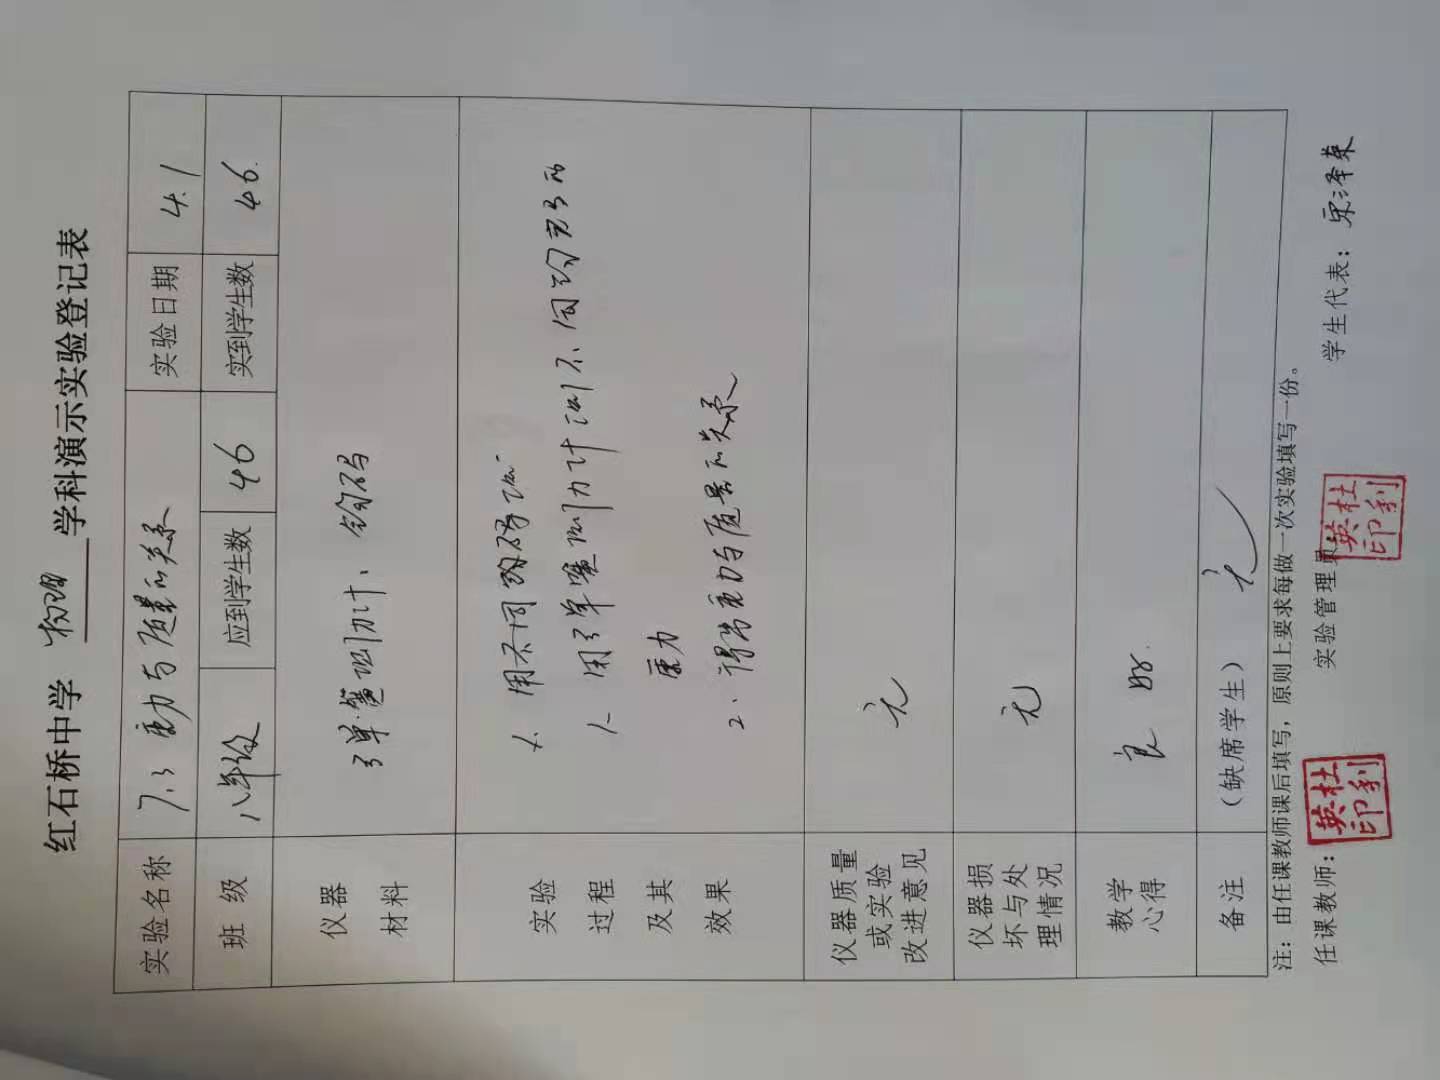 红石桥中学 物理 学科演示实验登记表
实验名称 7.3 重力与质量的关系 实验日期 4.1
班 级 八年级 应到学生数 46 实到学生数 46.
仪器
材料
弹簧测力计、钩码
实验
过程
及其
效果
用不同钩码
1. 用弹簧测力计测不同钩码的
重力
2. 得出重力与质量的关系
仪器质量
或实验
改进意见
无
仪器损
坏与处
理情况
无
教学
心得
良好.
备注 (缺席学生) 无
注：由任课教师课后填写，原则上要求每做一次实验填写一份。
任课教师： 杜英利印 实验管理员 杜英利印 学生代表： 宋泽栗